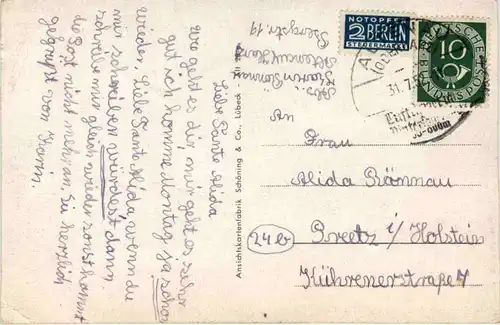 Liebe Tante Alida
wie geht es dir mir geht es sehr
gut ich komme Montag ja schon
wieder. Liebe Tante Alida wenn du
mir schreiben würdest dann
schreibe mir gleich wieder sonst kommt
die Post nicht mehr an. Sei herzlich
gegrüßt von Karin.
Abs.
Karin
Bergstr. 19
Ansichtskartenfabrik Schöning & Co., Lübeck
NOTOPFER
2 BERLIN
STEUERMARKE
DEUTSCHE
BUNDESPOST
10
31.7.5
An
Frau
Alida Rönnau
24b
Preetz i/ Holstein
Kührenerstraße 7